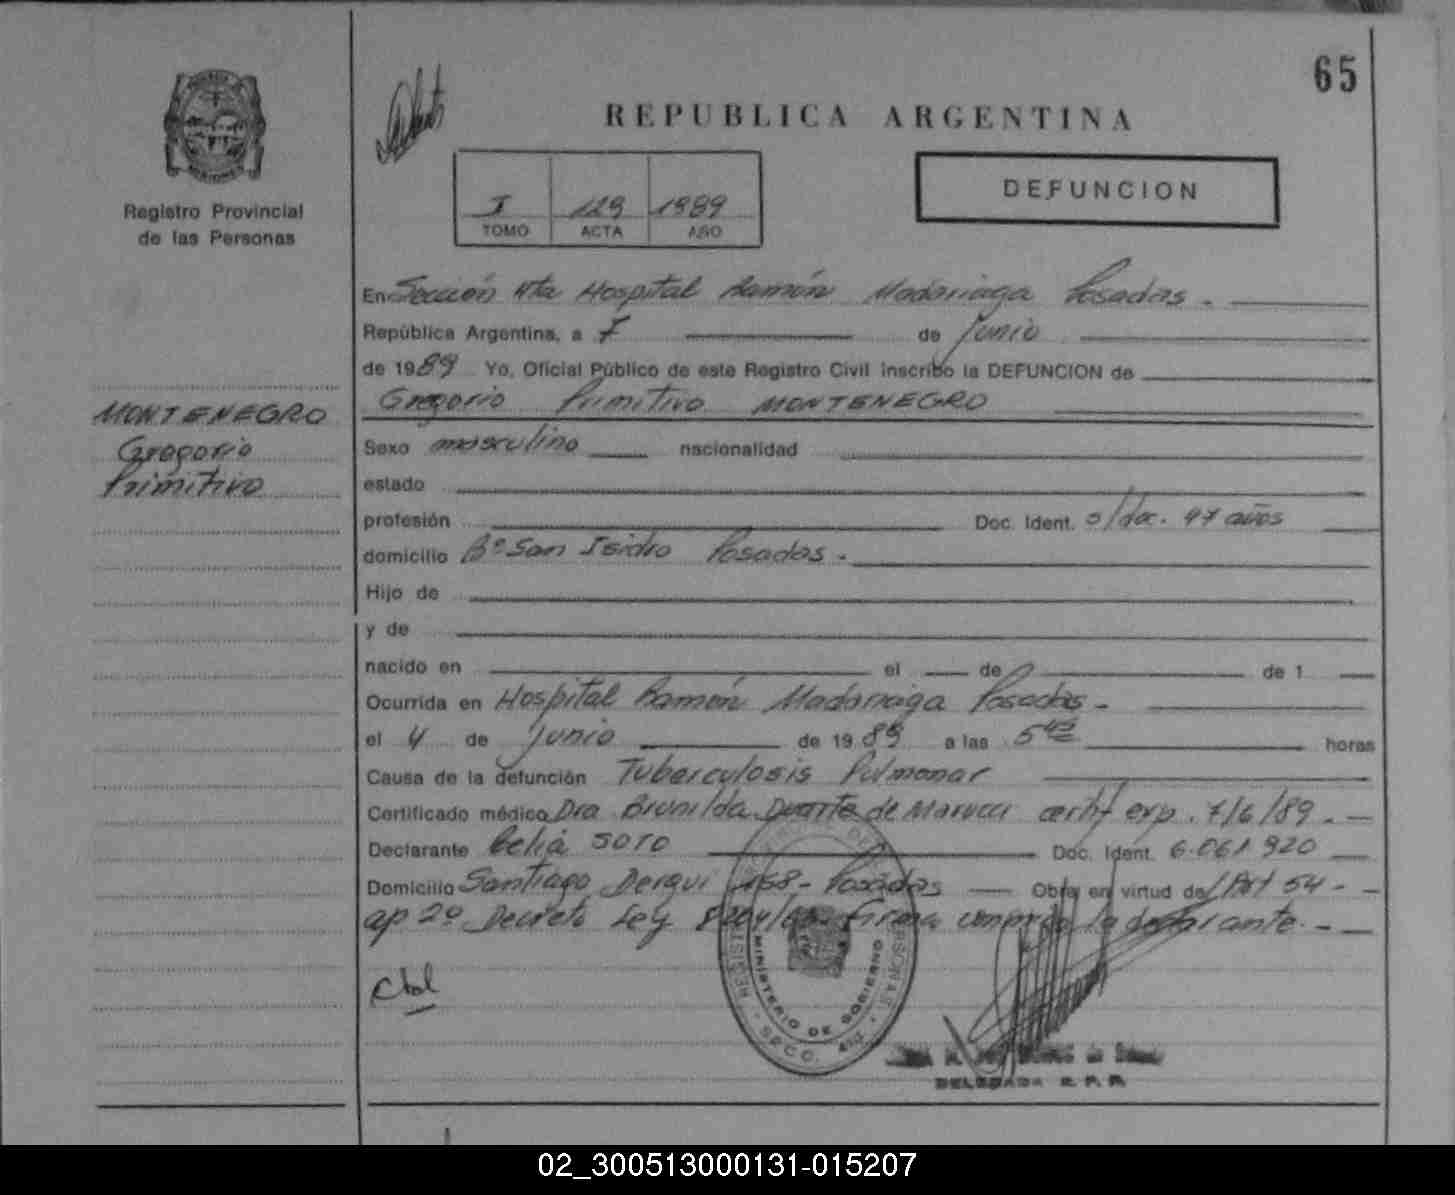 65
REPUBLICA ARGENTINA
DEFUNCION
I 129 1989
TOMO ACTA AÑO
Registro Provincial
de las Personas
MONTENEGRO
Gregorio
Primitivo
En Sección 4ta Hospital Ramón Madariaga Posadas.
República Argentina, a 7 de Junio
de 1989 Yo, Oficial Público de este Registro Civil inscribo la DEFUNCION de
Gregorio Primitivo MONTENEGRO
Sexo masculino nacionalidad
estado
profesión Doc. Ident. s/doc. 47 años
domicilio Bº San Isidro Posadas.
Hijo de
y de
nacido en el de de 1
Ocurrida en Hospital Ramón Madariaga Posadas.
el 4 de junio de 1989 a las 5 horas
Causa de la defunción Tuberculosis Pulmonar
Certificado médico Dra Brunilda Duarte de Marucci certif exp. 7/6/89.
Declarante Celia SOTO Doc. Ident. 6.061.920
Domicilio Santiago Derqui 168- Posadas Obra en virtud de Art 54-
ap 2º Decreto Ley Firma la declarante.
MINISTERIO DE GOBIERNO
DELEGADA R. P. P.
02_300513000131-015207